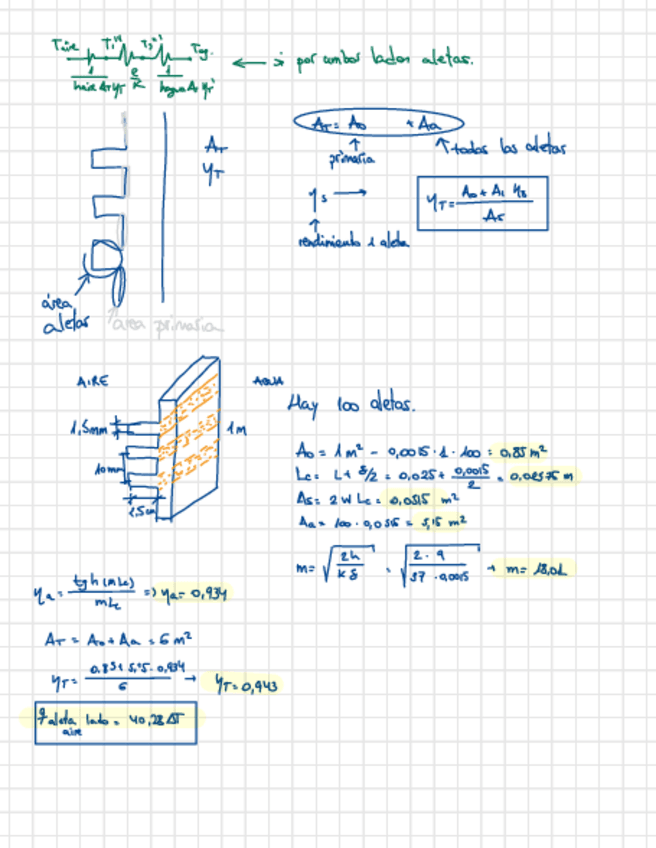 Taire T₁'' T₂'' Tag.
1/(haire AT ηT) e/K 1/(hagua AT ηT')
← ; por ambos lados aletas.
AT
ηT
AT = A0 + Aa
↑ primaria
↑ todas las aletas
ηs →
↑
rendimiento 1 aleta
ηT = (A0 + A1 ηs)/As
área aletas
área primaria
AIRE
AGUA
1,5mm
10mm
2,5cm
1M
Hay 100 aletas.
A0 = 1m² - 0,0015 · 1 · 100 = 0,85 m²
Lc = L + δ/2 = 0,025 + 0,0015/2 = 0,02575 m
As = 2 W Lc = 0,0515 m²
Aa = 100 · 0,0515 = 5,15 m²
m = √(2h/kδ) = √(2 · 9/37 · 0,0015) → m = 18,01
ηa = tgh(mLc)/mLc => ηa = 0,934
AT = A0 + Aa = 6 m²
ηT = (0,85 + 5,15 · 0,934)/6 → ηT = 0,943
q aleta lado aire = 40,28 ΔT